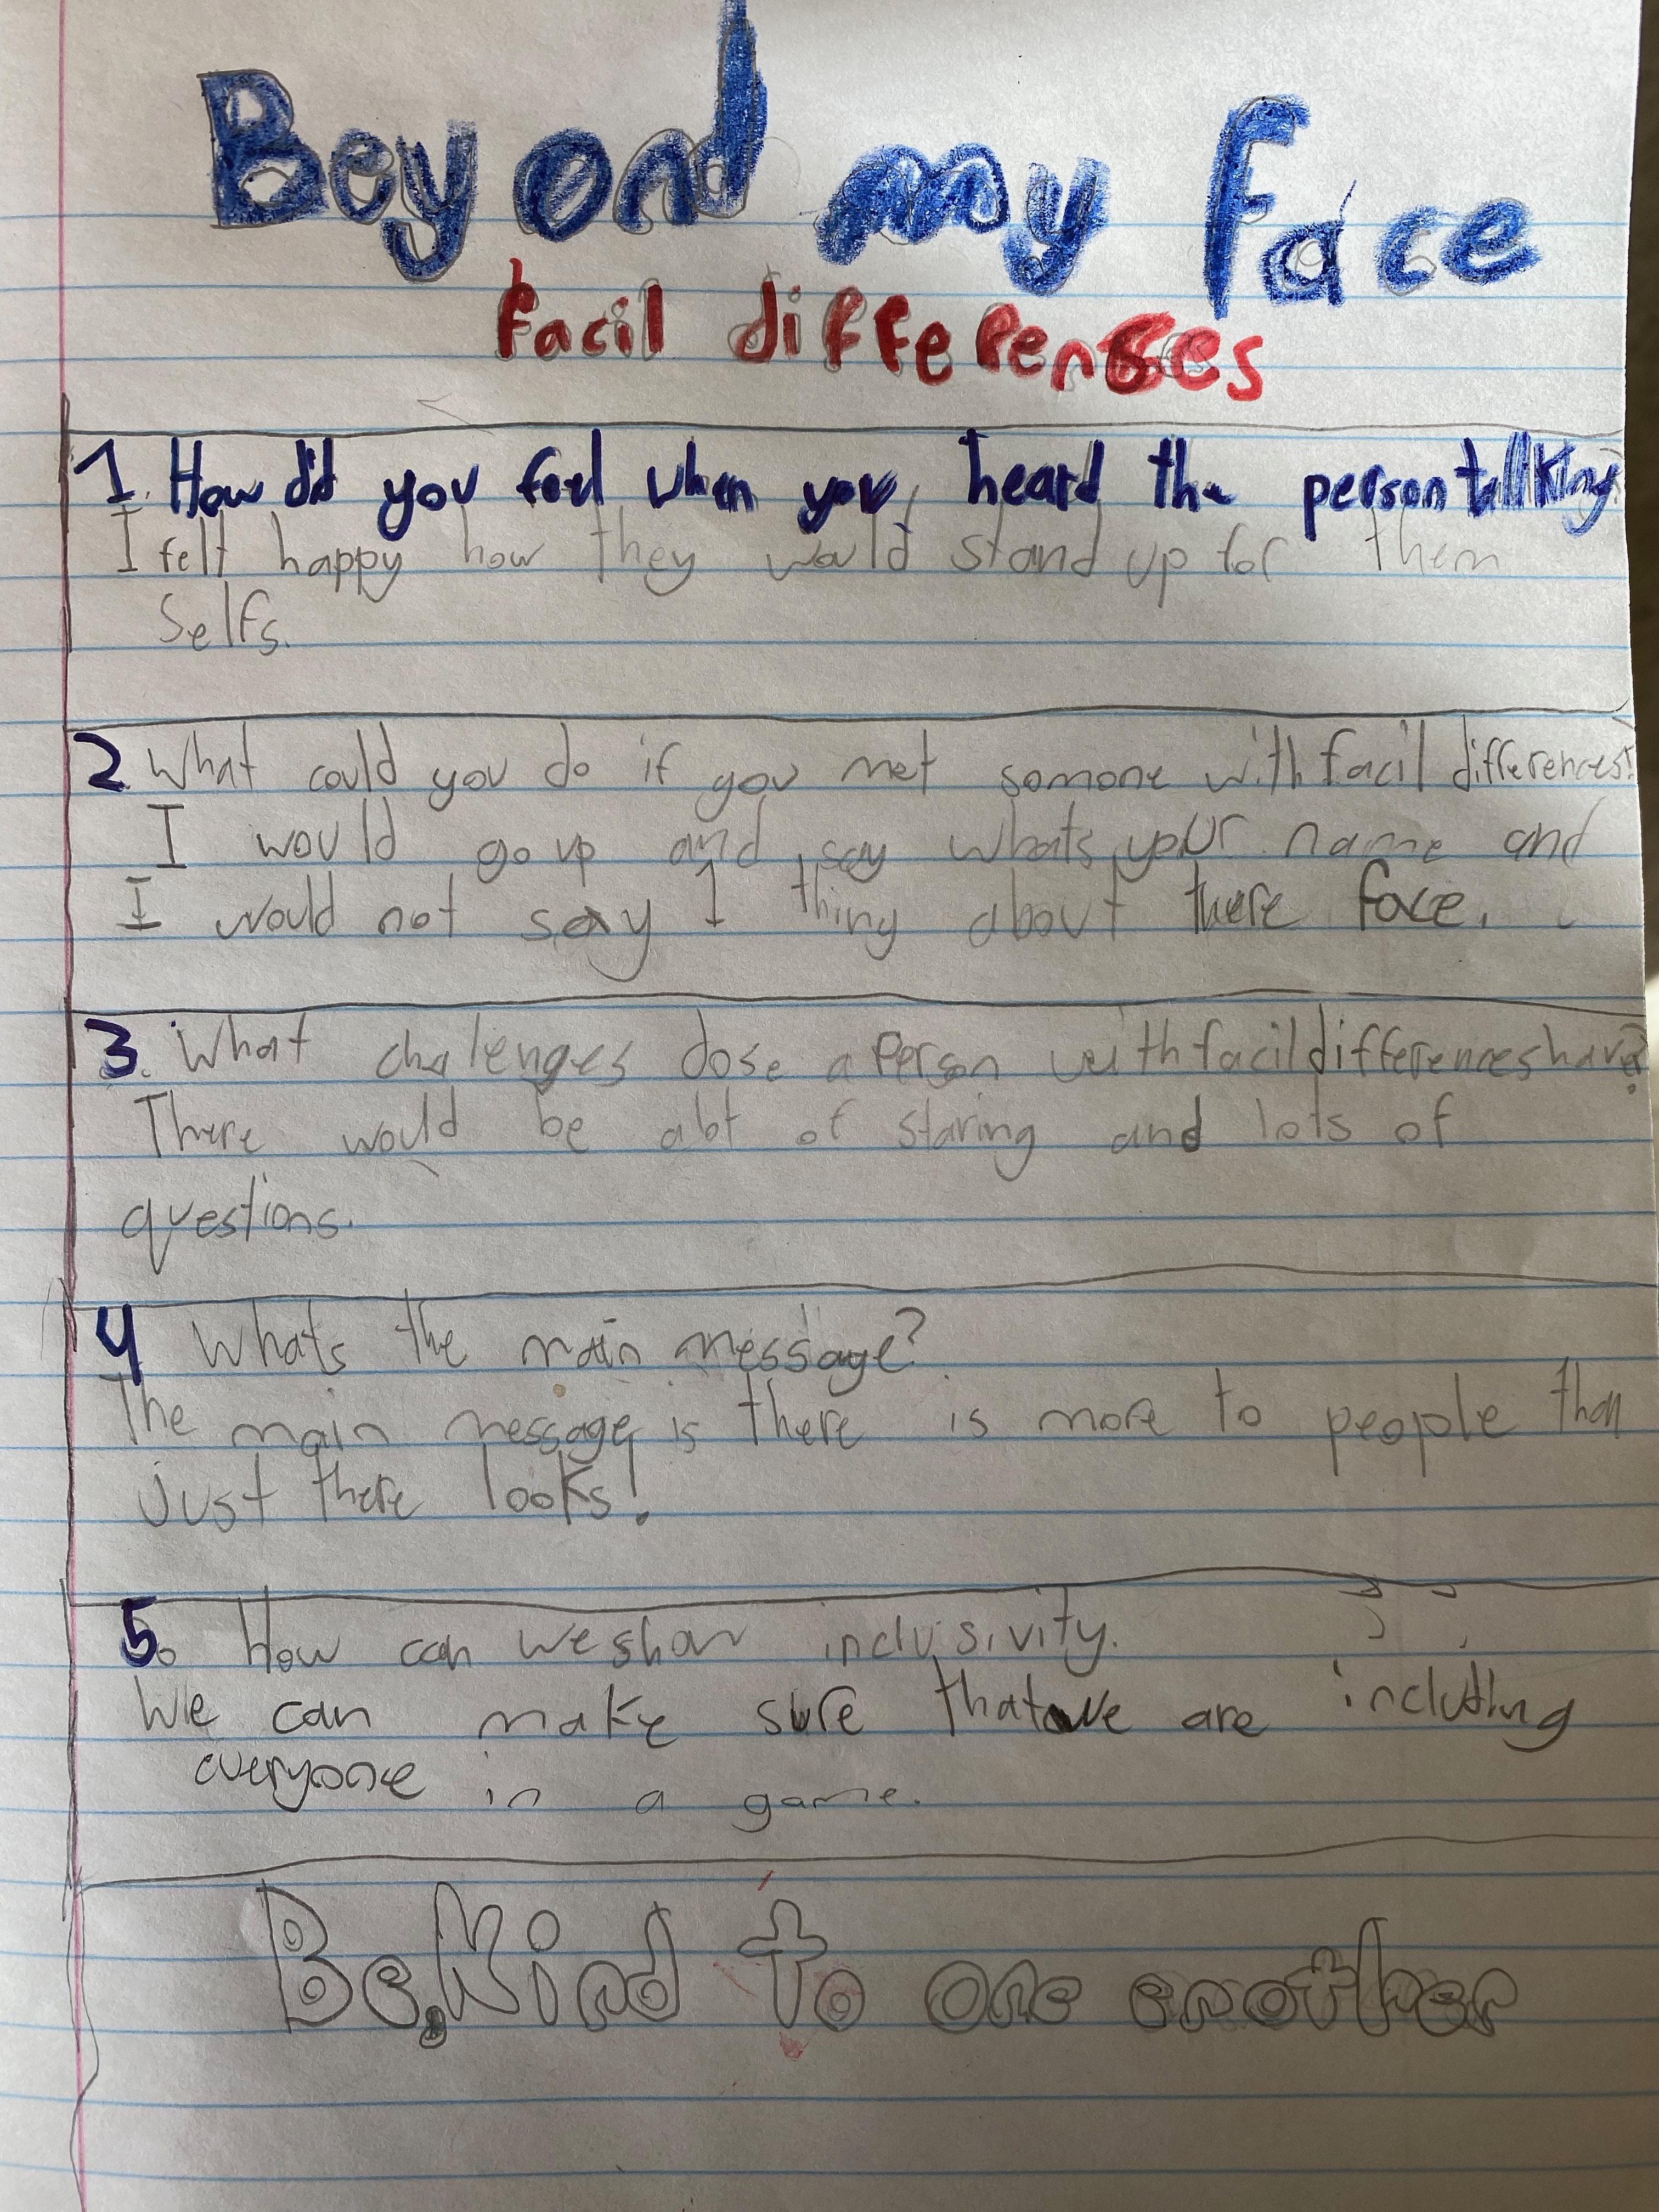 Beyond my face
facil differences
1. How did you feel when you heard the person tallking
I felt happy how they would stand up for them
selfs.
2 What could you do if you met somone with facil differences?
I would go up and say whats your name and
I would not say 1 thing about there face.
3. What chalenges dose a Person with facil differences have?
There would be alot of staring and lots of
questions.
4 Whats the main message?
The main message is there is more to people than
just there looks!
5. How can we show inclusivity.
We can make sure that we are including
everyone in a game.
Be Kind to one enother